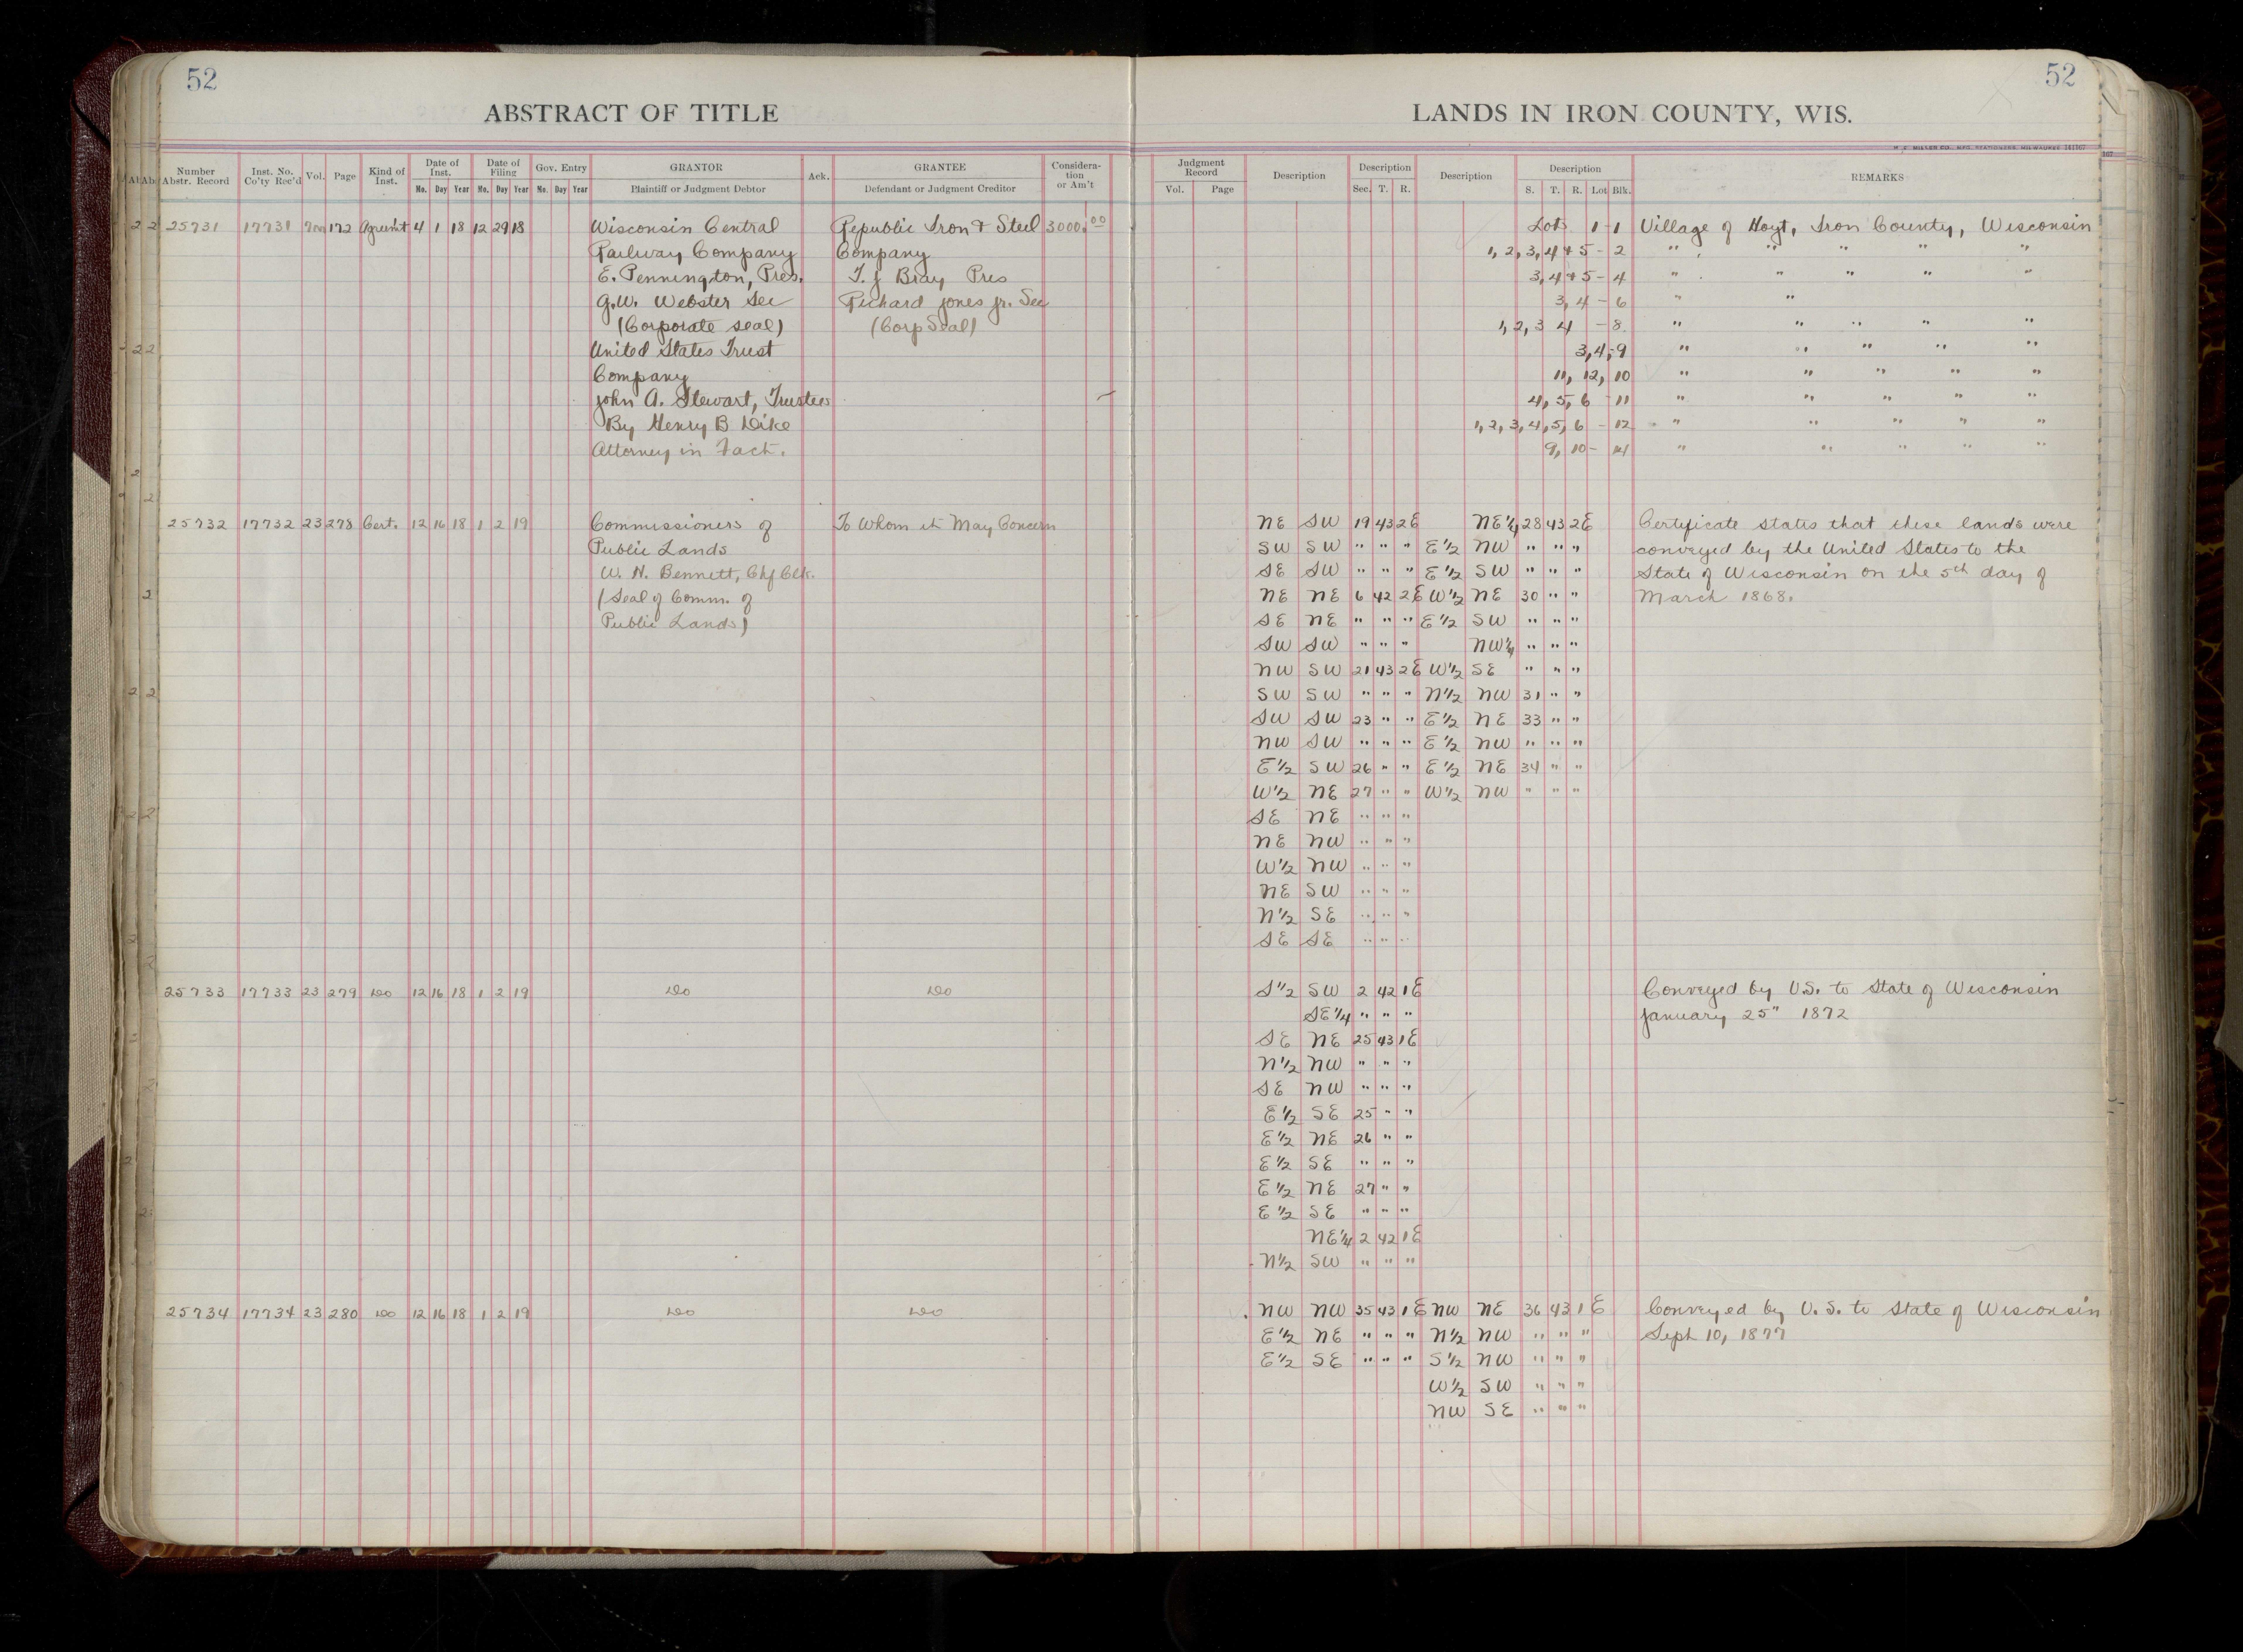 52
52
ABSTRACT OF TITLE
LANDS IN IRON COUNTY, WIS.
Number Abstr. Record | Inst. No. Co'ty Rec'd | Vol. | Page | Kind of Inst. | Date of Inst. Mo. Day Year | Date of Filing Mo. Day Year | Gov. Entry Mo. Day Year | GRANTOR Plaintiff or Judgment Debtor | Ack. | GRANTEE Defendant or Judgment Creditor | Considera-tion or Am't | Judgment Record Vol. Page | Description | Description Sec. T. R. | Description | Description S. T. R. Lot Blk. | REMARKS
25731 17731 172 Agreemt 4 1 18 12 29 18 Wisconsin Central Republic Iron & Steel 3000.00 Lots 1-1 Village of Hoyt, Iron County, Wisconsin
Railway Company Company 1, 2, 3, 4 & 5 - 2 " " " " "
E. Pennington, Pres. T. J Bray Pres 3, 4 & 5 - 4 " " " " "
G.W. Webster Sec Richard Jones Jr. Sec 3, 4 - 6 " "
(Corporate seal) (Corp Seal) 1, 2, 3 4 - 8. " " " " "
United States Trust 3, 4, - 9 " " " " "
Company 11, 12, 10 " " " " "
John A. Stewart, Trustees 4, 5, 6 - 11 " " " " "
By Henry B Dike 1, 2, 3, 4, 5, 6 - 12 " " " " "
Attorney in Fact. 9, 10 - 14 " " " " "
25732 17732 23 278 Cert. 12 16 18 1 2 19 Commissioners of To Whom it May Concern NE SW 19 43 2E NE 1/4 28 43 2E Certificate states that these lands were
Public Lands SW SW " " " E 1/2 NW " " " conveyed by the United States to the
W. H. Bennett, Chf Clk. SE SW " " " E 1/2 SW " " " State of Wisconsin on the 5th day of
(Seal of Comm. of NE NE 6 42 2E W 1/2 NE 30 " " March 1868.
Public Lands) SE NE " " " E 1/2 SW " " "
SW SW " " " NW 1/4 " " "
NW SW 21 43 2E W 1/2 SE " " "
SW SW " " " N 1/2 NW 31 " "
SW SW 23 " " E 1/2 NE 33 " "
NW SW " " " E 1/2 NW " " "
E 1/2 SW 26 " " E 1/2 NE 34 " "
W 1/2 NE 27 " " W 1/2 NW " " "
SE NE " " "
NE NW " " "
W 1/2 NW " " "
NE SW " " "
N 1/2 SE " " "
SE SE " " "
25733 17733 23 279 Do 12 16 18 1 2 19 Do Do S 1/2 SW 2 42 1E Conveyed by U.S. to State of Wisconsin
SE 1/4 " " " January 25" 1872
SE NE 25 43 1E
N 1/2 NW " " "
SE NW " " "
E 1/2 SE 25 " "
E 1/2 NE 26 " "
E 1/2 SE " " "
E 1/2 NE 27 " "
E 1/2 SE " " "
NE 1/4 2 42 1E
N 1/2 SW " " "
25734 17734 23 280 Do 12 16 18 1 2 19 Do Do NW NW 35 43 1E NW NE 36 43 1E Conveyed by U. S. to State of Wisconsin
E 1/2 NE " " " N 1/2 NW " " " Sept 10, 1877
E 1/2 SE " " " S 1/2 NW " " "
W 1/2 SW " " "
NW SE " " "